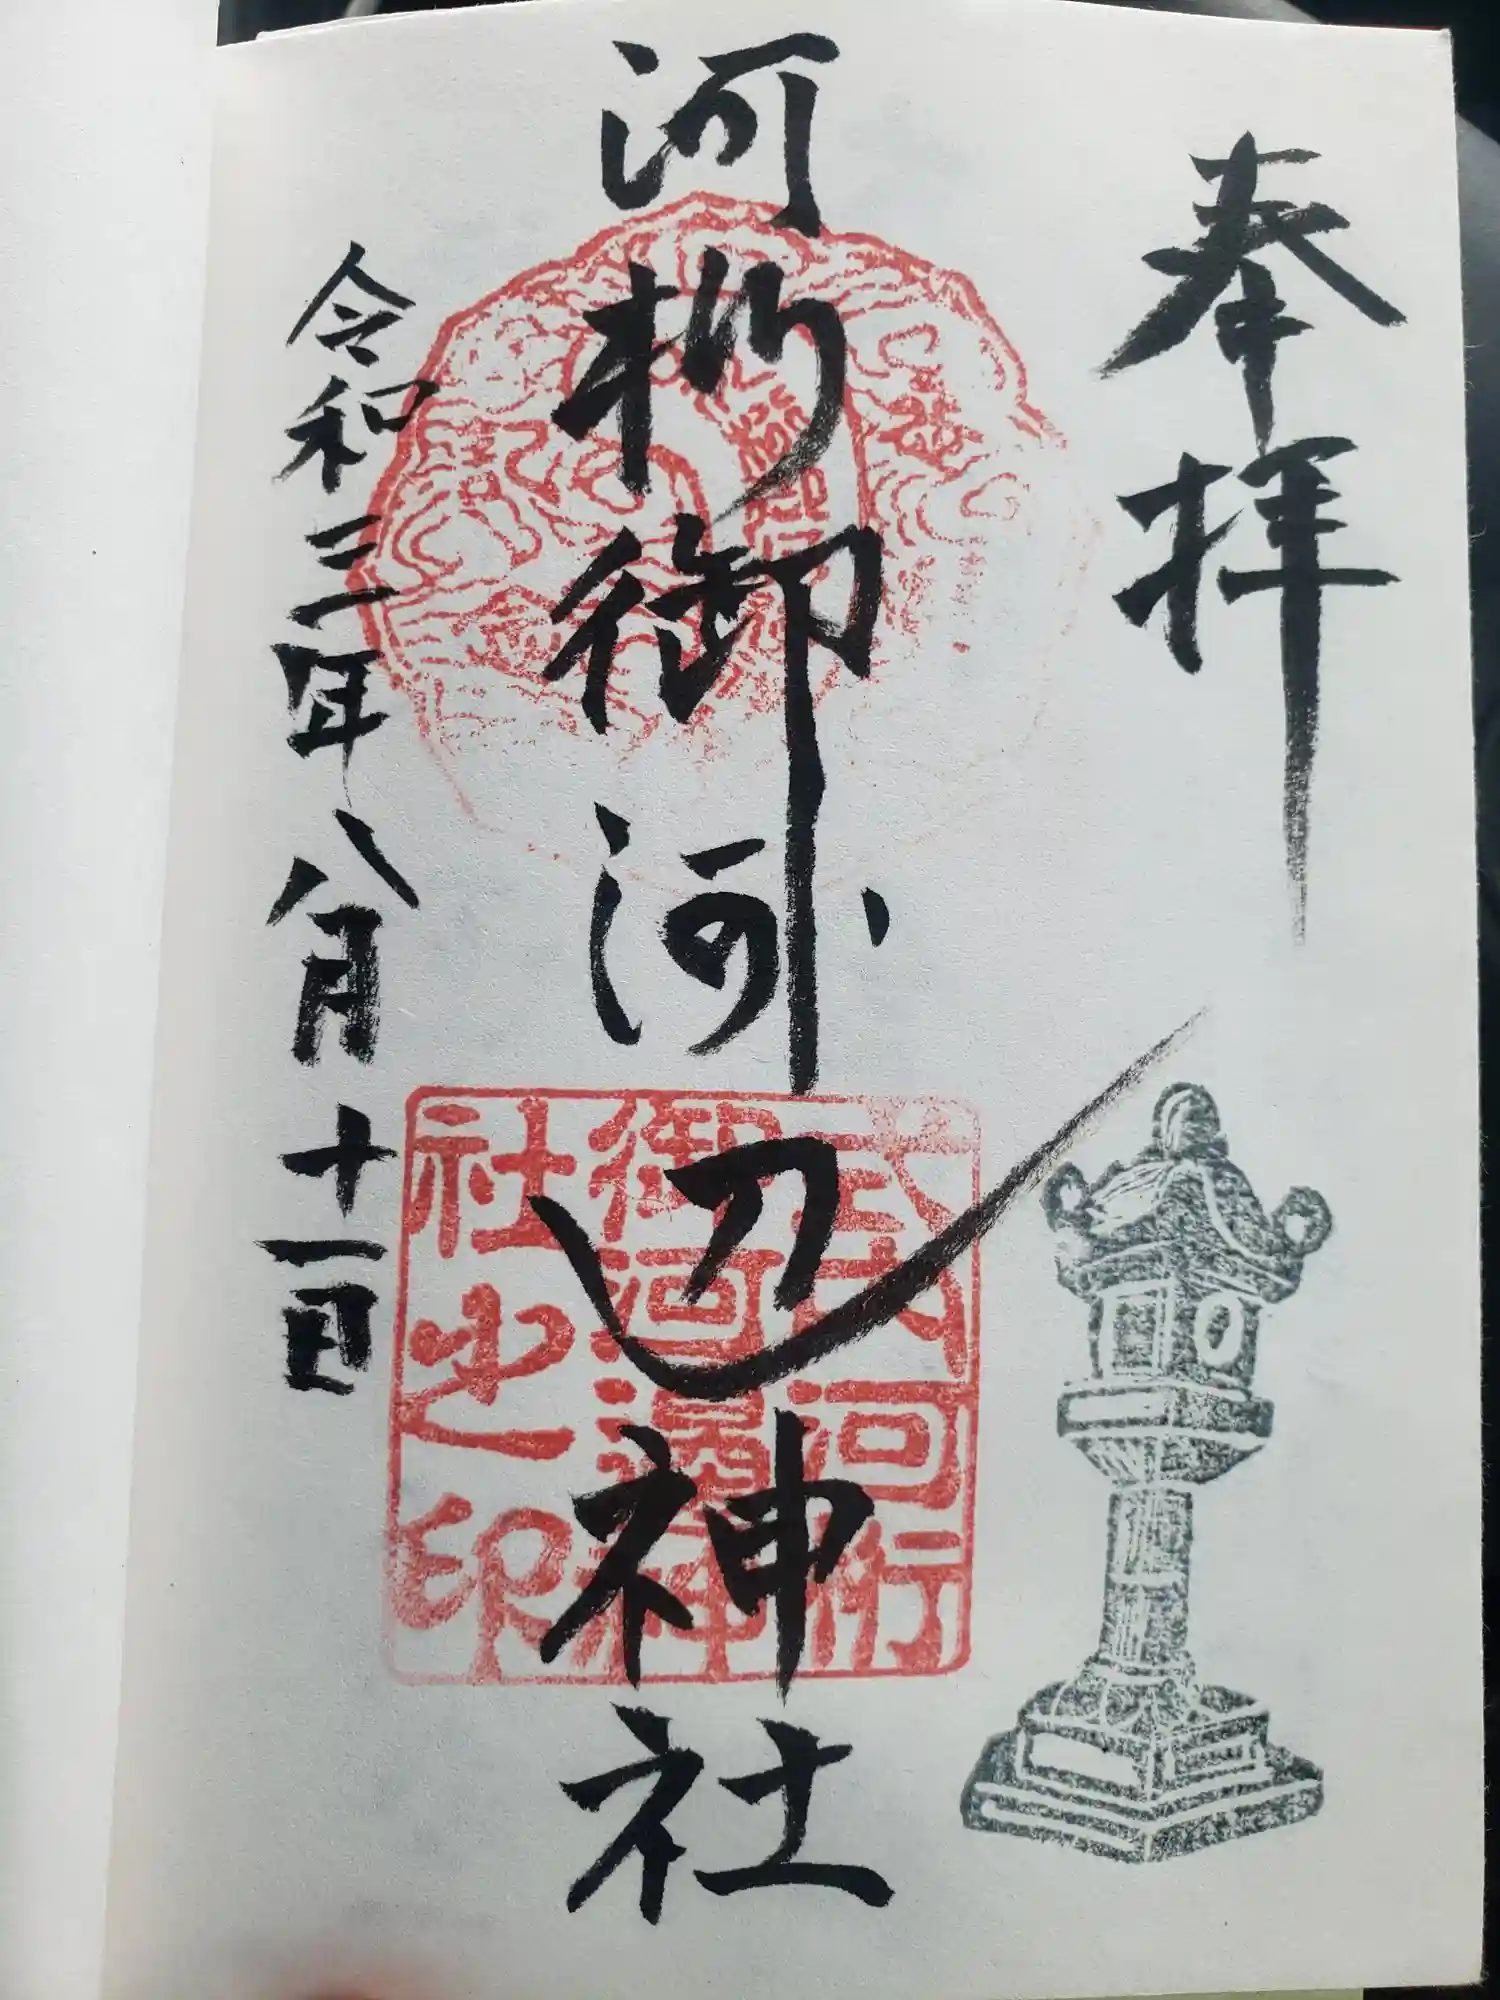 奉拝
河桁御河辺神社
令和三年八月十一日
式内河桁
御河邊神
社之印